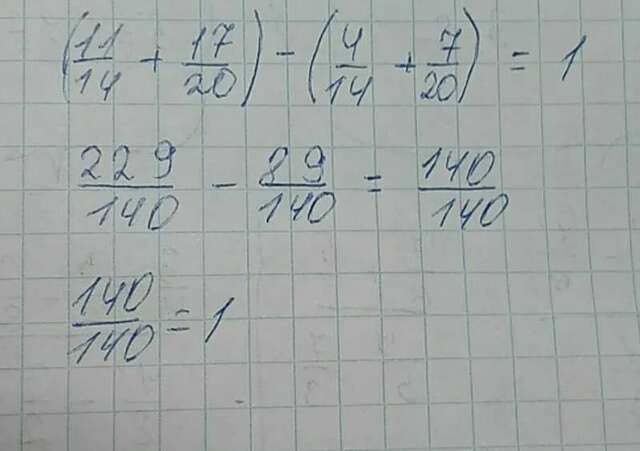 (11/14 + 17/20) - (4/14 + 7/20) = 1
229/140 - 89/140 = 140/140
140/140 = 1